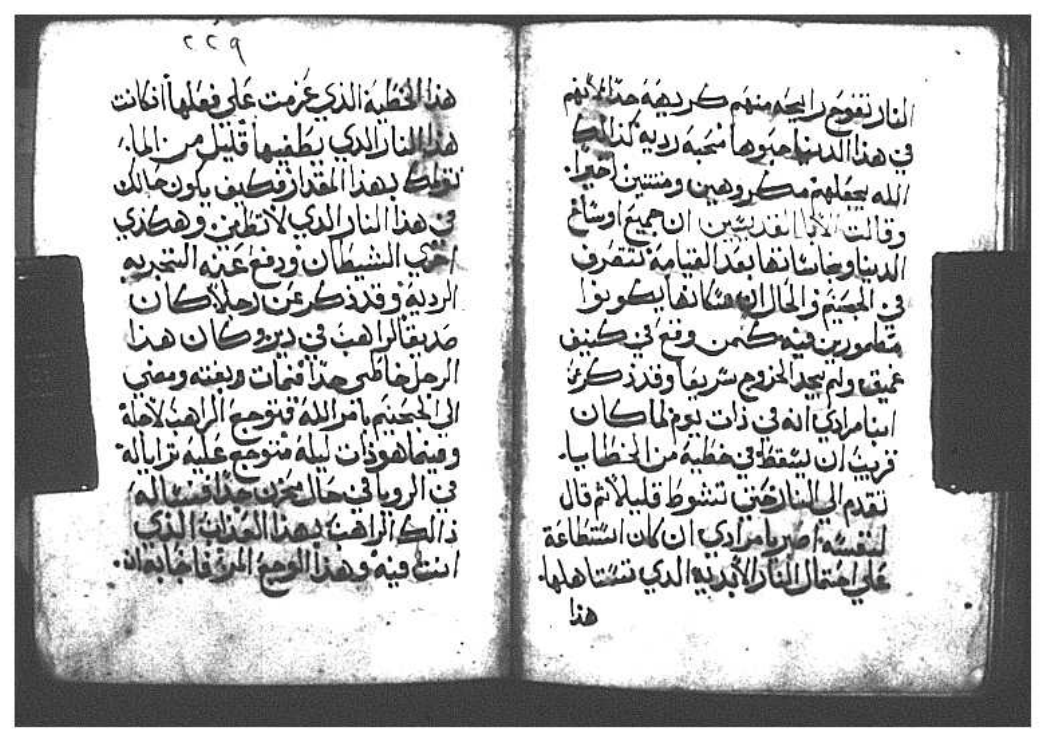 النار تفوح رايحه منهم كريهة جدّا لأنهم
في هذا الدنيا حبوها محبه رديه كذالك
الله يجعلهم مكروهين ومنتنين اخيرا.
وقالت الأبا القديسين ان جميع اوساخ
الدنيا ونجاساتها بعد القيامة تتصرف
في الجحيم والحال ان سكانها يكونوا
مطمورين فيه كمن وقع في كنيف
عميق ولم يجد الخروج سريعا وقد ذكر عن
انبا مرادي انه في ذات يوم لما كان
قريب ان يسقط في خطية من الخطايا.
تقدم الي النار حتي تشوط قليلا ثم قال
لنفسه اصبر يا مرادي ان كان استطاعة
علي احتمال النار الأبدية الذي تستاهلها.
هذا
٢٢٩
هذا الخطية الذي عزمت علي فعلها ان كانت
هذا النار الدي يطفيها قليل من الما.
تولمك بهذا المقدار فكيف يكون حالك
في هذا النار الدي لا تطفى وهكذي
اخزي الشيطان ودفع عنه التجربه
الرديه وقد ذكر عن رجلا كان
صديقا لراهب في دير وكان هدا
الرجل خاطى جدّا فمات وبغته ومضي
الي الجحيم بامر الله فتوجع الراهب لاجله
وفيما هو ذات ليلة متوجع عليه ترايا له
في الرويا في حال محزن جدّا فسأله
ذالك الراهب بهذا العذاب الذي
انت فيه وهذا الوجع المر فاجابه ان.